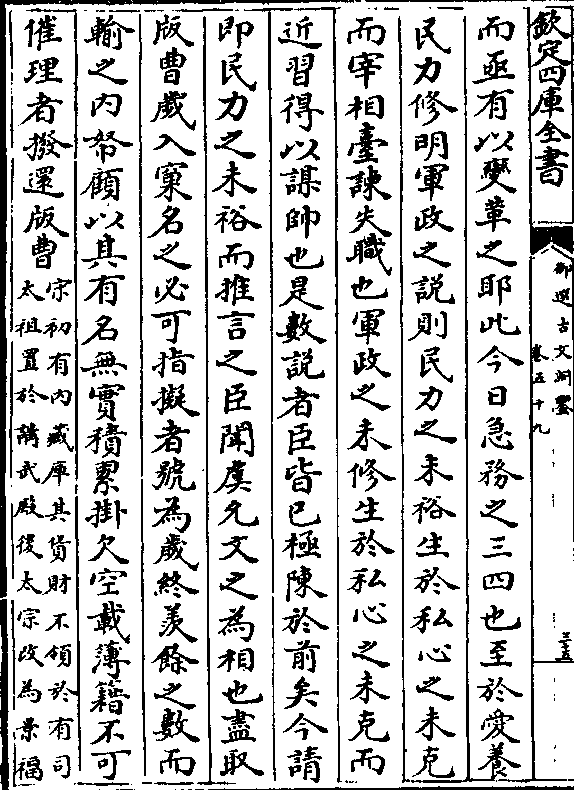 欽定四庫全書
御選古文淵鑒
卷五十九
三十五
而亟有以變革之耶此今日急務之三四也至於愛養
民力修明軍政之說則民力之未裕生於私心之未克
而宰相臺諫失職也軍政之未修生於私心之未克而
近習得以謀帥也是數說者臣皆已極陳於前矣今請
即民力之未裕而推言之臣聞虞允文之為相也盡取
版曹歲入窠名之必可指擬者號為歲終羡餘之數而
輸之内帑顧以其有名無實積累掛欠空載簿籍不可
催理者撥還版曹
宋初有内藏庫其貨財不領於有司
太祖置於講武殿後太宗改為景福